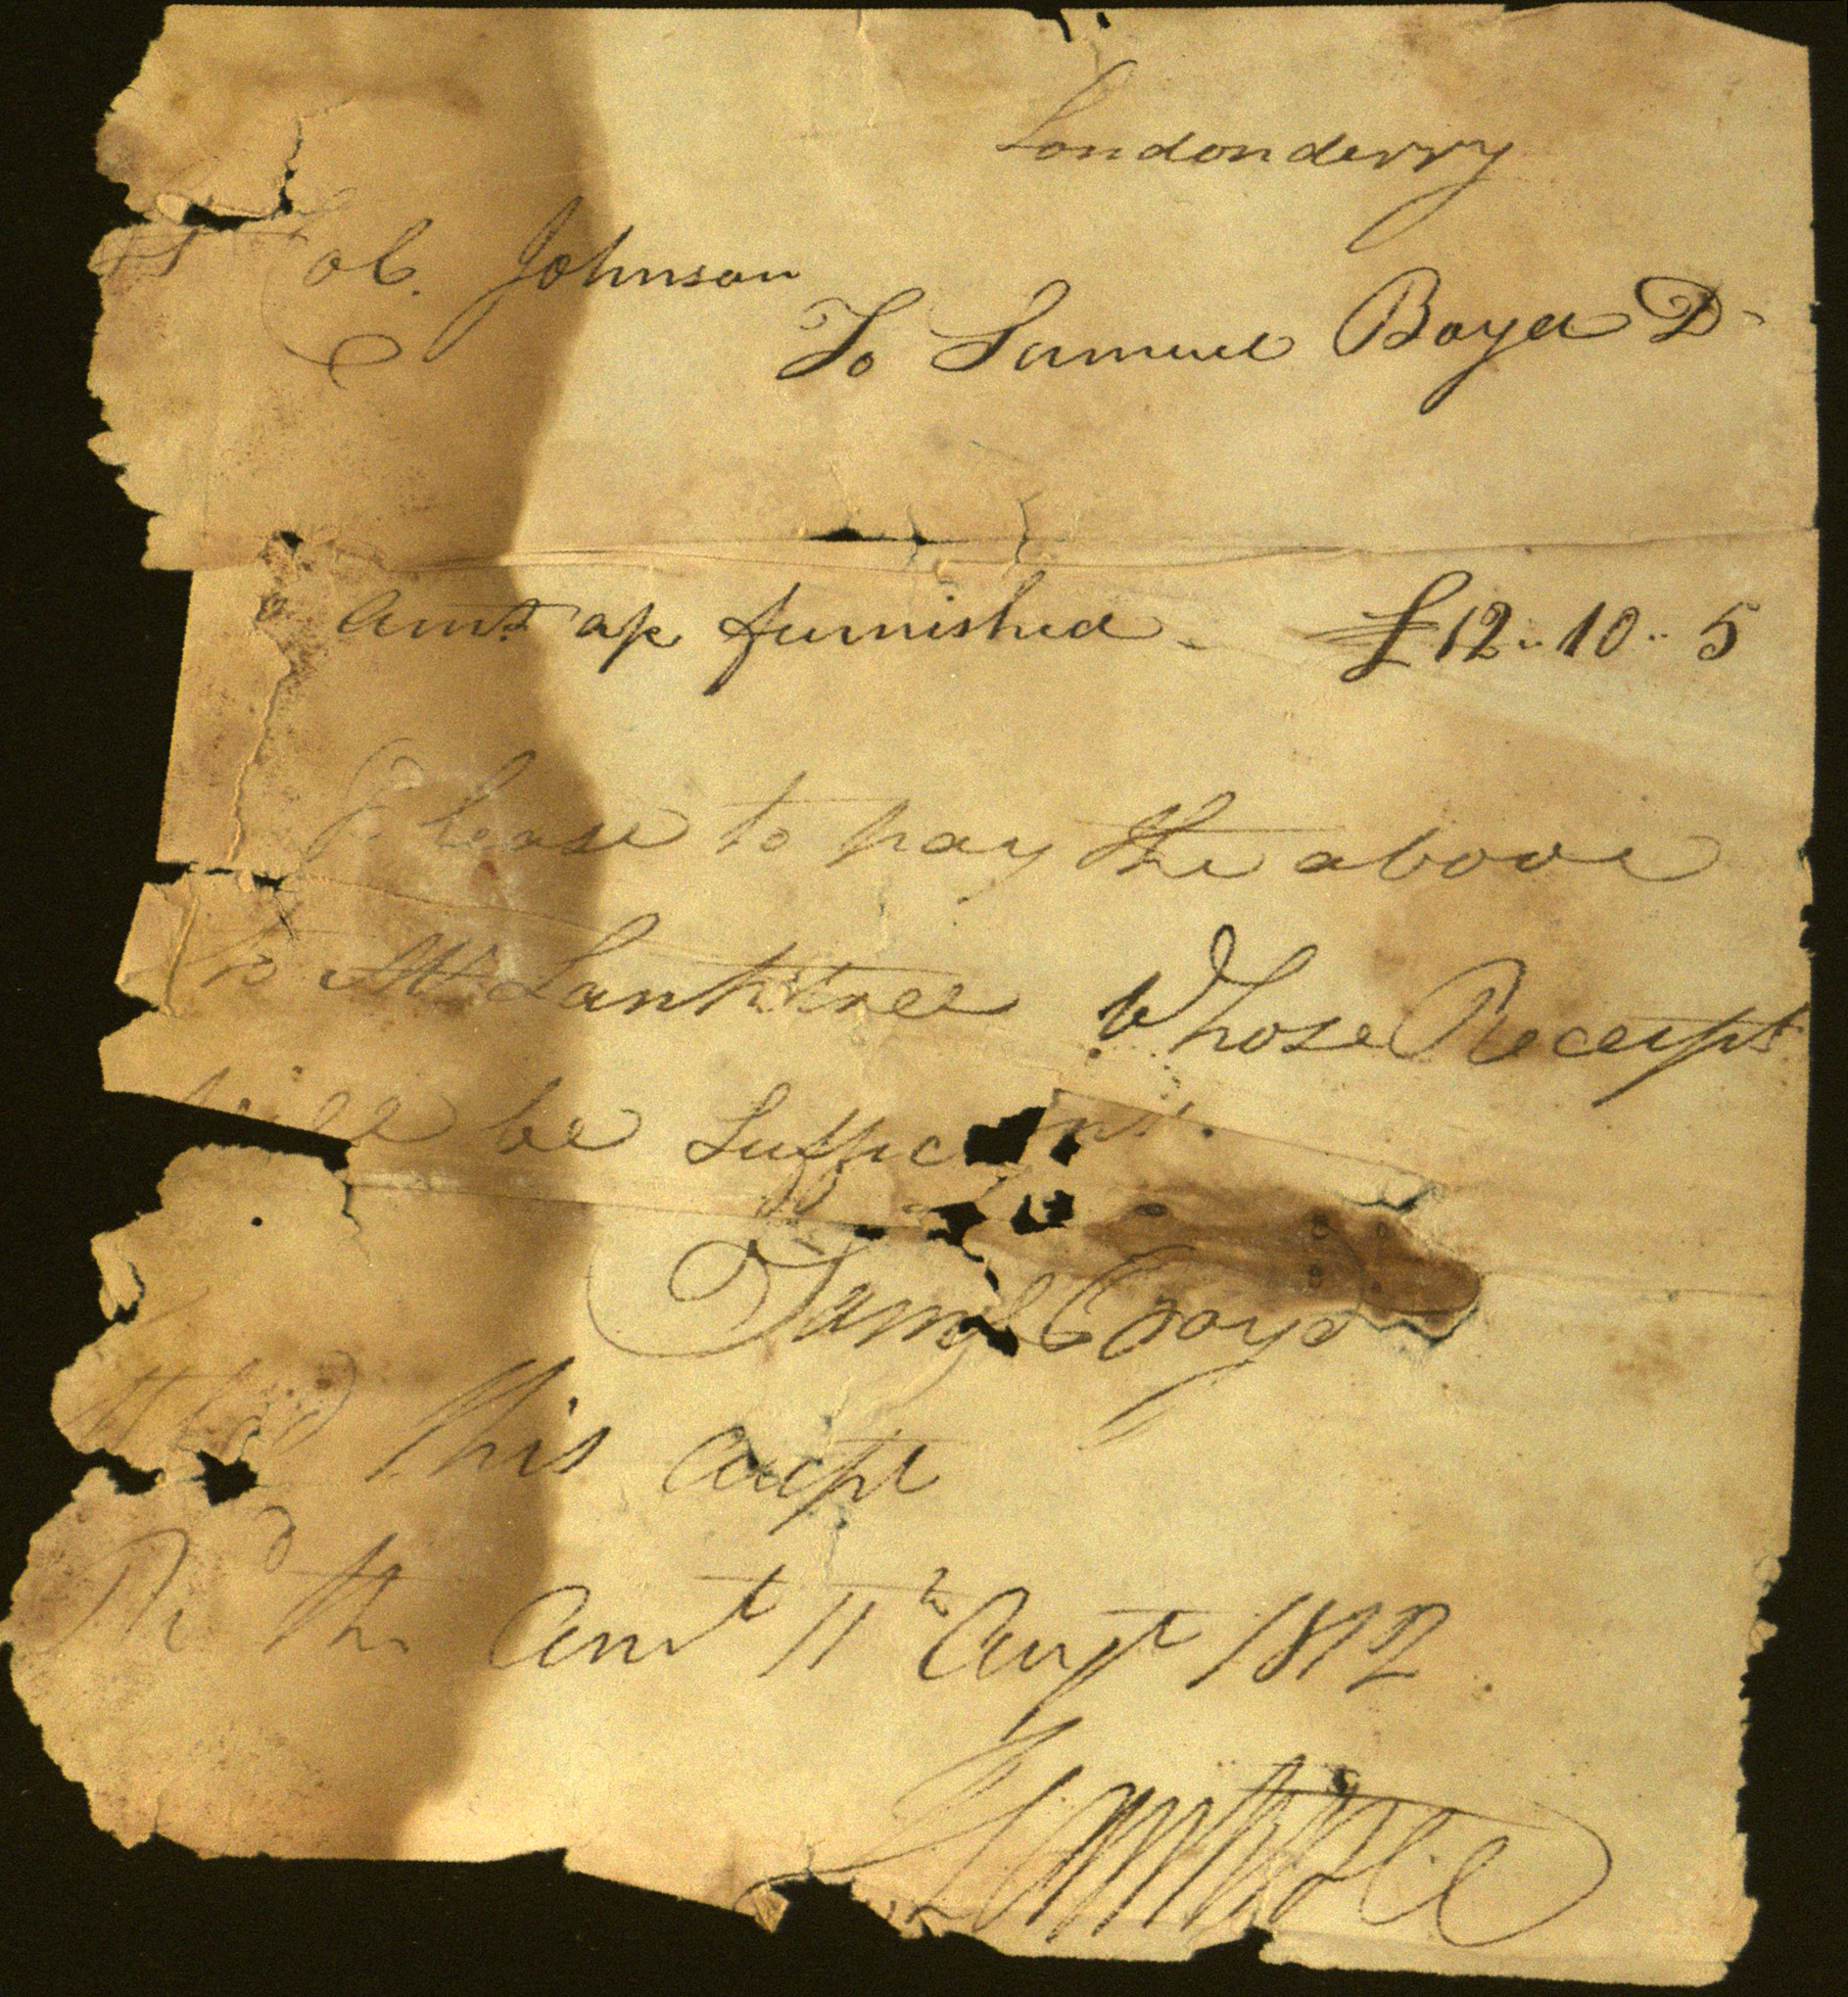 Londonderry
Col. Johnson
To Samuel Boyd Dr
Amt. ap furnished - £12..10..5
Please to pay the above
to Mr Lanktree Whose Receipt
will be Sufficient.
Saml Boyd
this acct
Recd the Amt 11th Augt 1812
Lanktree